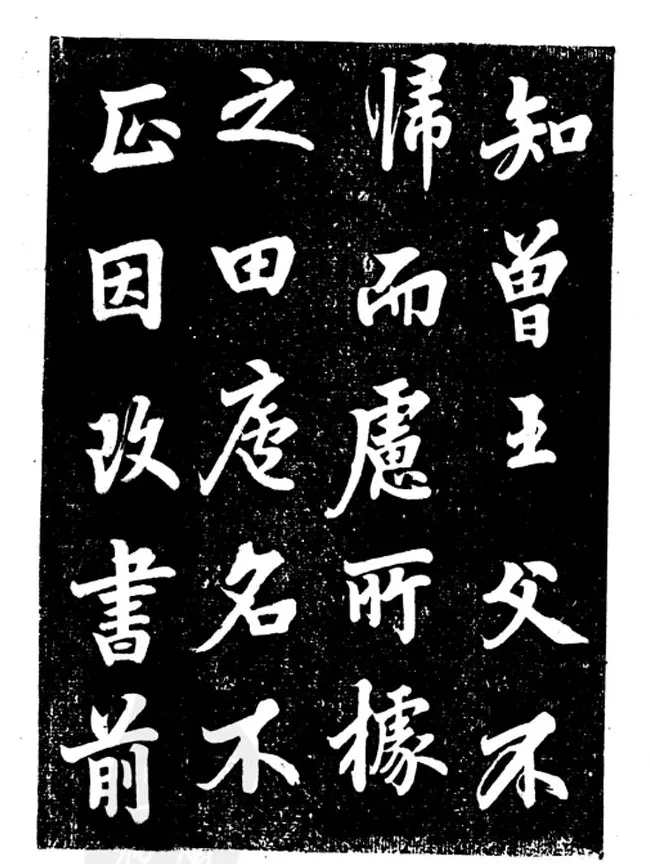 知曾王父不
帰而慮所據
之田虗名不
正因改書前